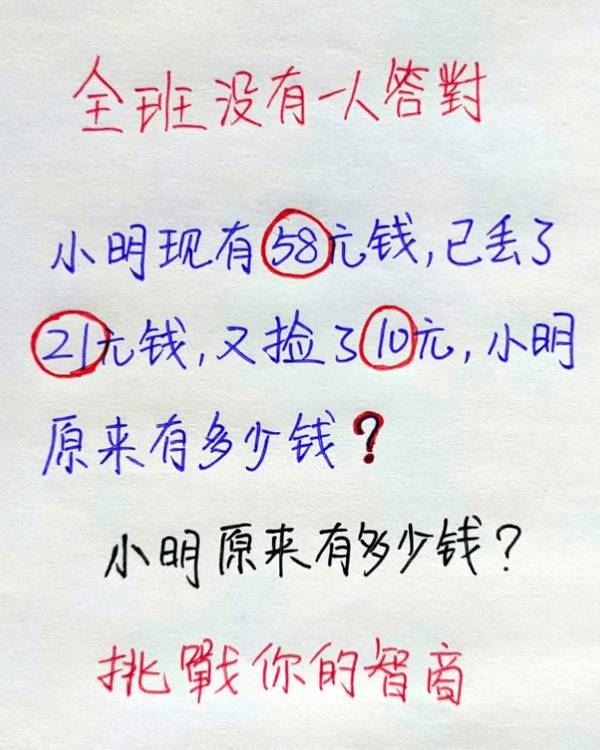 全班没有一人答對
小明现有58元钱,已丢了
21元钱,又捡了10元,小明
原来有多少钱?
小明原来有多少钱?
挑戰你的智商